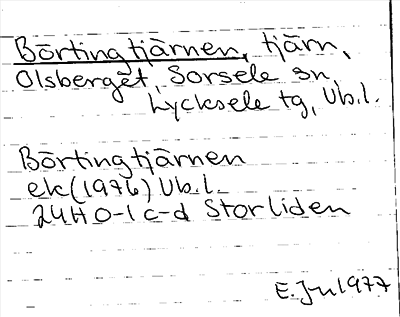 Börtingtjärnen, tjärn,
Olsberget, Sorsele sn,
Lycksele tg, Vb.l.
Börtingtjärnen
ek (1976) Vb.l.
24H 0-1 c-d Storliden
E. Ju 1977